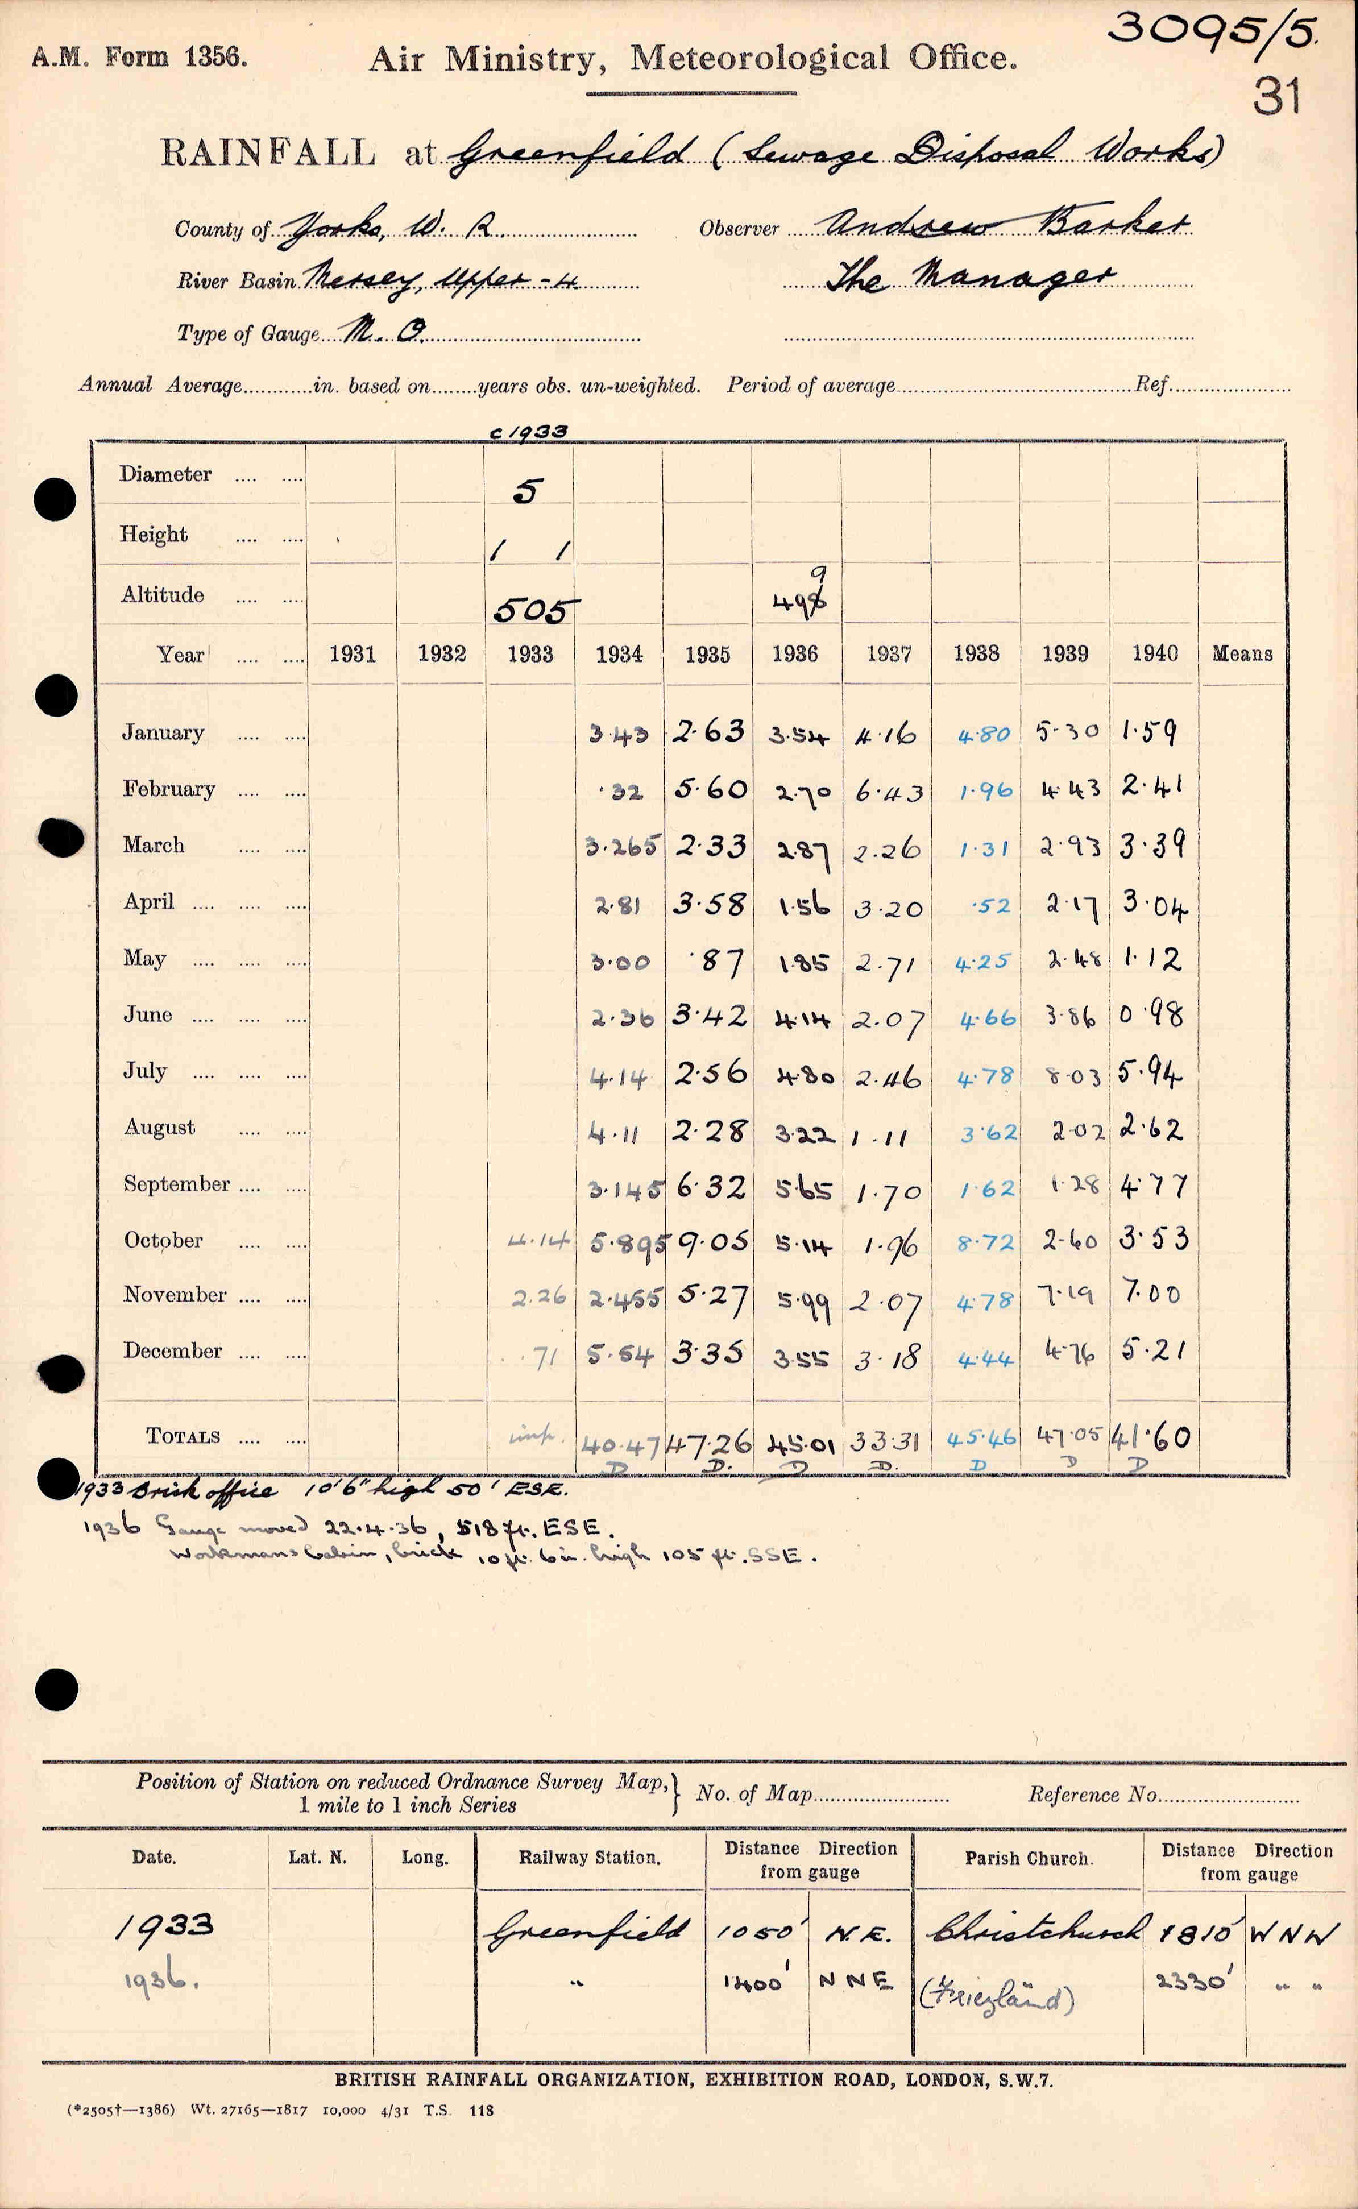 3095/5.
A.M. Form 1356. Air Ministry, Meteorological Office.
31
RAINFALL at Greenfield (Sewage Disposal Works)
County of Yorks, W. R. Observer Andrew Barker
River Basin Mersey, Upper - 4 The Manager
Type of Gauge M. O.
Annual Average in. based on years obs. un-weighted. Period of average Ref.
c 1933
Diameter 5
Height 1 1
9
Altitude 505 498
Year 1931 1932 1933 1934 1935 1936 1937 1938 1939 1940 Means
January 3.43 2.63 3.54 4.16 4.80 5.30 1.59
February .32 5.60 2.70 6.43 1.96 4.43 2.41
March 3.265 2.33 2.87 2.26 1.31 2.93 3.39
April 2.81 3.58 1.56 3.20 .52 2.17 3.04
May 3.00 .87 1.85 2.71 4.25 2.48 1.12
June 2.36 3.42 4.14 2.07 4.66 3.86 0.98
July 4.14 2.56 4.80 2.46 4.78 8.03 5.94
August 4.11 2.28 3.22 1.11 3.62 2.02 2.62
September 3.145 6.32 5.65 1.70 1.62 1.28 4.77
October 4.14 5.895 9.05 5.14 1.96 8.72 2.60 3.53
November 2.26 2.455 5.27 5.99 2.07 4.78 7.19 7.00
December .71 5.54 3.35 3.55 3.18 4.44 4.76 5.21
TOTALS imp. 40.47 47.26 45.01 33.31 45.46 47.05 41.60
D D. D D. D D D
1933 Brick office 10'6" high 50' ESE.
1936 Gauge moved 22.4.36, 518 ft. ESE.
Workmans Cabin, brick 10 ft. 6 in. high 105 ft. SSE.
Position of Station on reduced Ordnance Survey Map, } No. of Map Reference No.
1 mile to 1 inch Series
Date. Lat. N. Long. Railway Station. Distance Direction from gauge Parish Church. Distance Direction from gauge
1933 Greenfield 1050' N.E. Christchurch 1810' W N W
1936. " 1400' N N E (Friezland) 2330' " "
BRITISH RAINFALL ORGANIZATION, EXHIBITION ROAD, LONDON, S.W.7.
(*2505†—1386) Wt. 27165—1817 10,000 4/31 T.S. 118